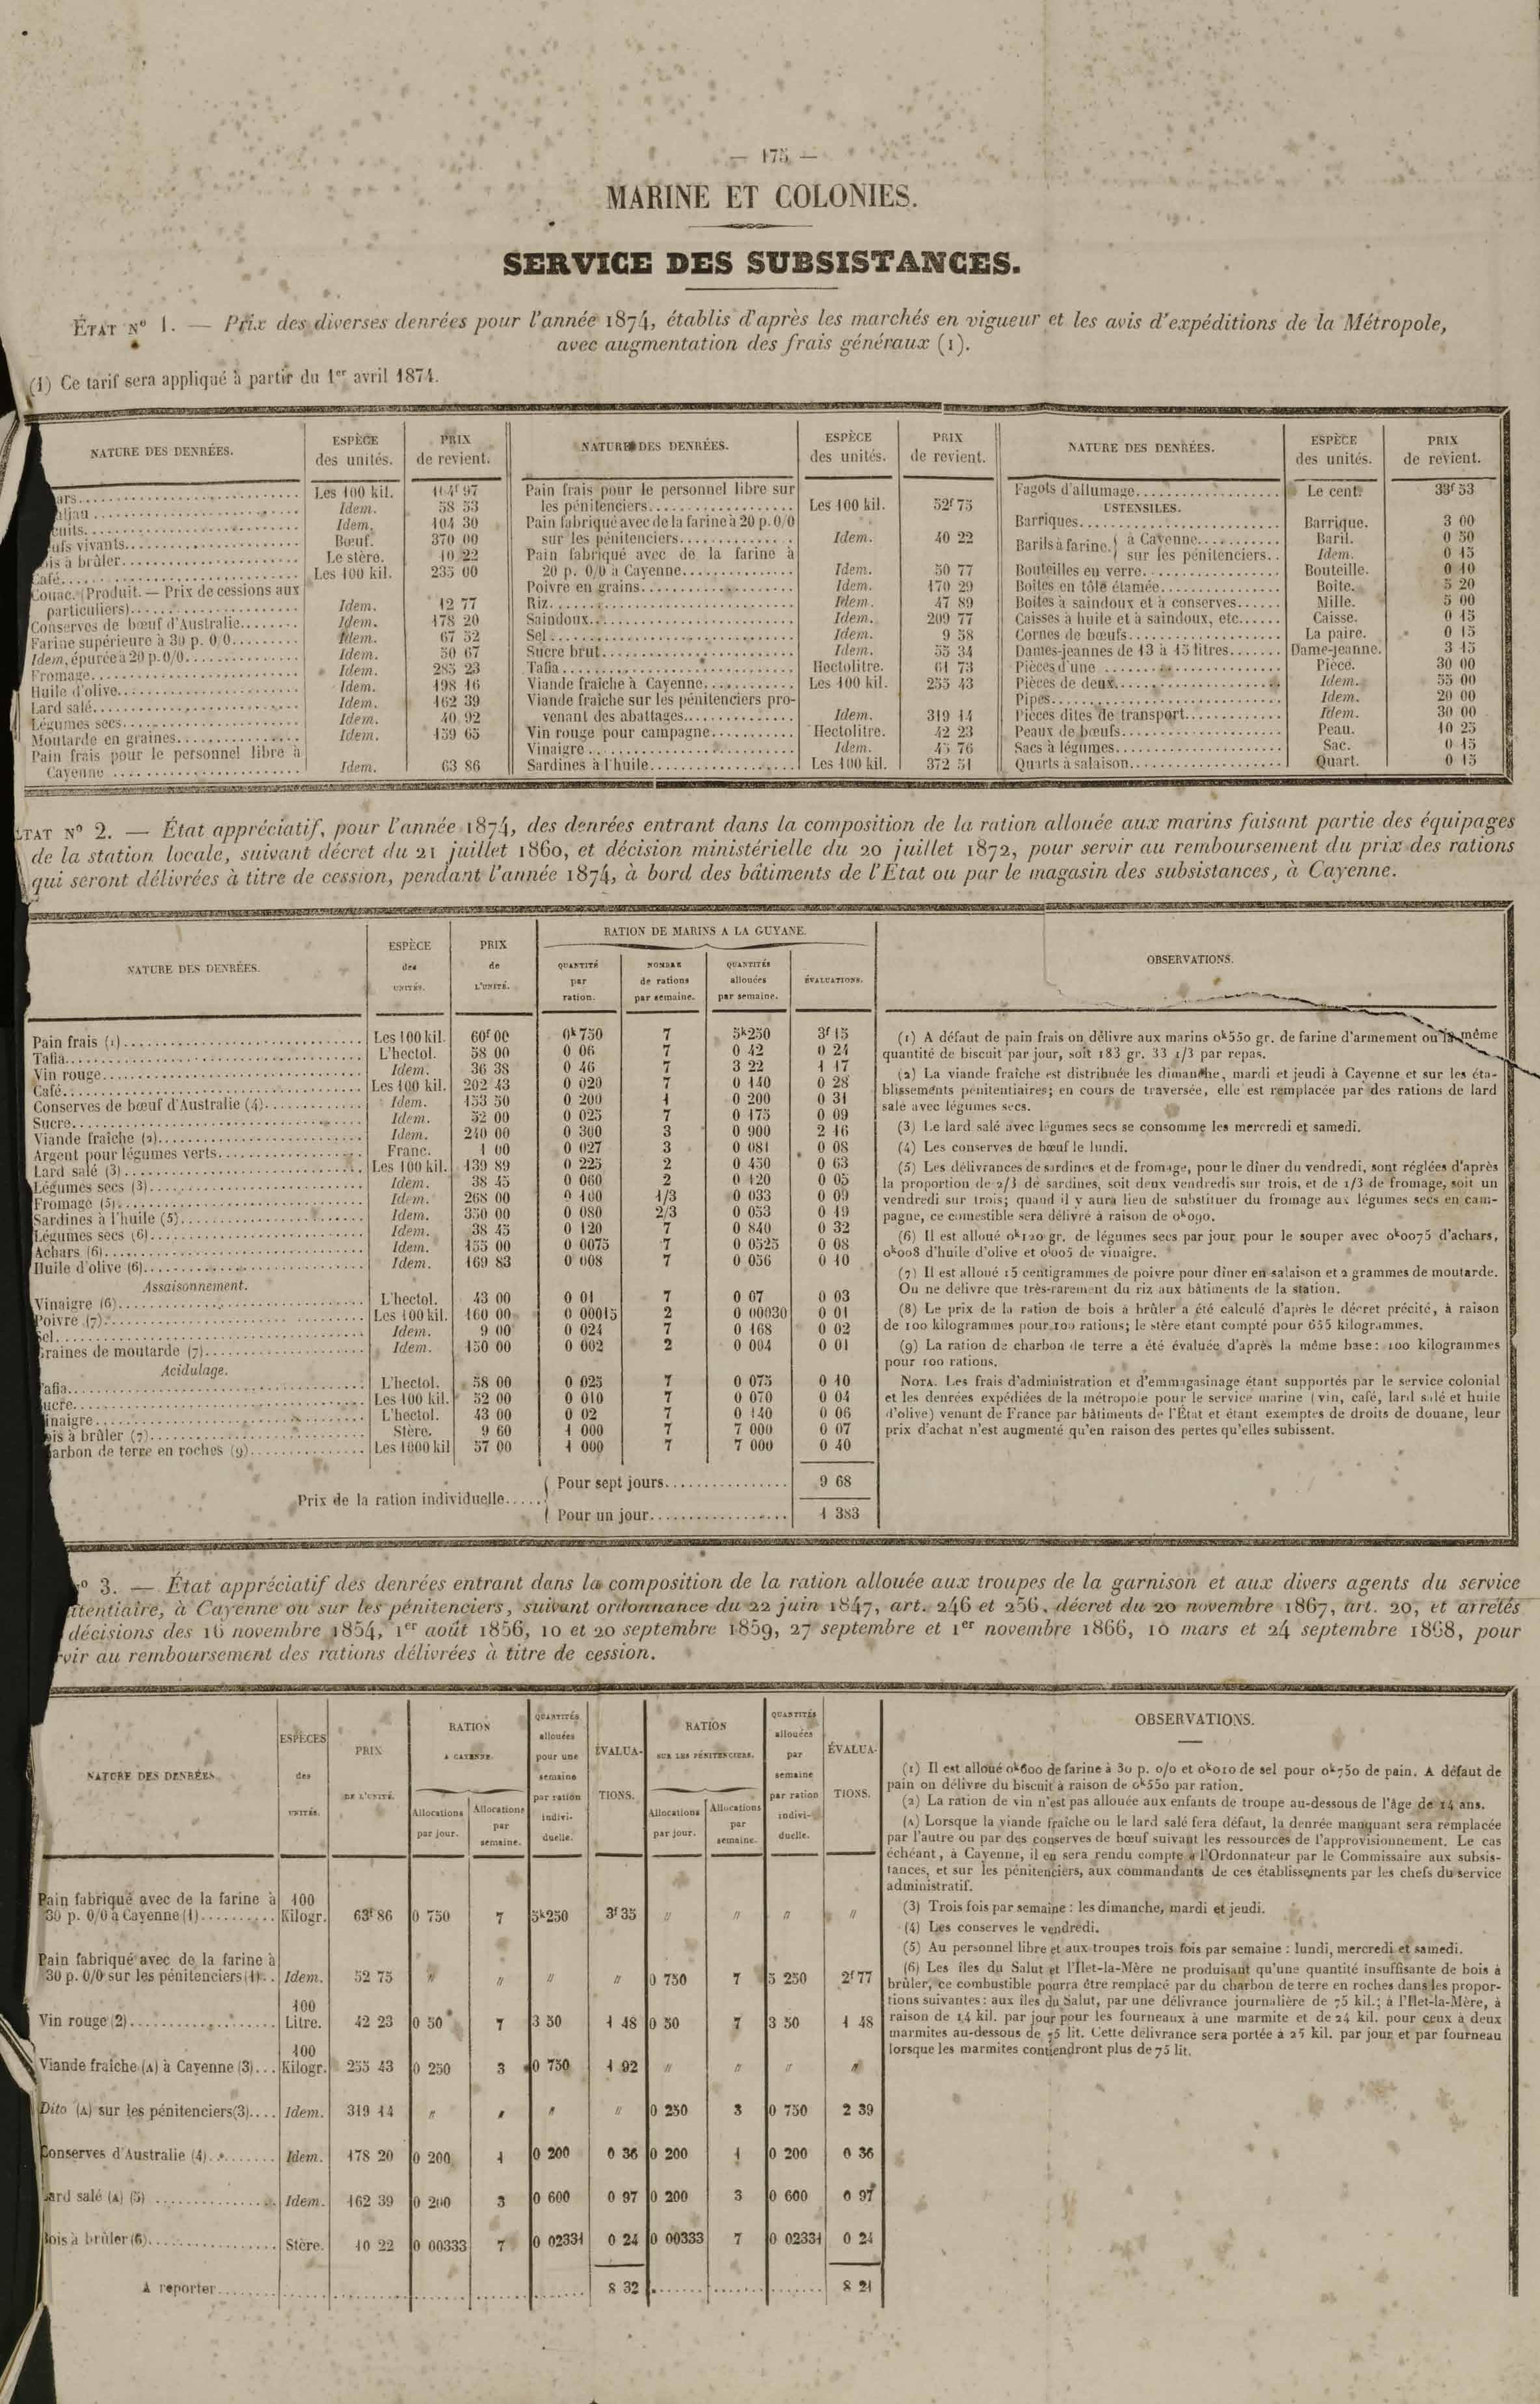 — 175 —
MARINE ET COLONIES.
SERVICE DES SUBSISTANCES.
ÉTAT Nº 1. — Prix des diverses denrées pour l'année 1874, établis d'après les marchés en vigueur et les avis d'expéditions de la Métropole,
avec augmentation des frais généraux (1).
(1) Ce tarif sera appliqué à partir du 1er avril 1874.
NATURE DES DENRÉES. ESPÈCE des unités. PRIX de revient.
ars Les 100 kil.
Idem. 58 53
Idem. 104 30
ufs vivants Bœuf. 370 00
is à brûler Le stère. 10 22
Café Les 100 kil. 235 00
Couac. (Produit. — Prix de cessions aux
particuliers) Idem. 12 77
Conserves de bœuf d'Australie Idem. 178 20
Farine supérieure à 30 p. 0/0 Idem. 67 52
Idem, épurée à 20 p. 0/0 Idem. 50 67
Fromage Idem. 285 23
Huile d'olive Idem. 198 16
Lard salé Idem. 162 39
Légumes secs Idem. 40 92
Moutarde en graines Idem. 159 65
Pain frais pour le personnel libre à
Cayenne Idem. 63 86
NATURE DES DENRÉES. ESPÈCE des unités. PRIX de revient.
Pain frais pour le personnel libre sur
les pénitenciers Les 100 kil. 52f 75
Pain fabriqué avec de la farine à 20 p. 0/0
sur les pénitenciers Idem. 40 22
Pain fabriqué avec de la farine à
20 p. 0/0 à Cayenne Idem. 50 77
Poivre en grains Idem. 170 29
Riz Idem. 47 89
Saindoux Idem. 209 77
Sel Idem. 9 58
Sucre brut Idem. 55 34
Tafia Hectolitre. 61 73
Viande fraîche à Cayenne Les 100 kil. 255 43
Viande fraîche sur les pénitenciers pro-
venant des abattages Idem. 319 14
Vin rouge pour campagne Hectolitre. 42 23
Vinaigre Idem. 45 76
Sardines à l'huile Les 100 kil. 372 51
NATURE DES DENRÉES. ESPÈCE des unités. PRIX de revient.
Fagots d'allumage Le cent. 33f 53
USTENSILES.
Barriques Barrique. 3 00
Barils à farine. { à Cayenne Baril. 0 50
sur les pénitenciers Idem. 0 15
Bouteilles en verre Bouteille. 0 10
Boîtes en tôle étamée Boîte. 5 20
Boîtes à saindoux et à conserves Mille. 5 00
Caisses à huile et à saindoux, etc Caisse. 0 15
Cornes de bœufs La paire. 0 15
Dames-jeannes de 13 à 15 litres Dame-jeanne. 3 15
Pièces d'une Pièce. 30 00
Pièces de deux Idem. 55 00
Pipes Idem. 20 00
Pièces dites de transport Idem. 30 00
Peaux de bœufs Peau. 10 25
Sacs à légumes Sac. 0 15
Quarts à salaison Quart. 0 15
TAT Nº 2. — État appréciatif, pour l'année 1874, des denrées entrant dans la composition de la ration allouée aux marins faisant partie des équipages
de la station locale, suivant décret du 21 juillet 1860, et décision ministérielle du 20 juillet 1872, pour servir au remboursement du prix des rations
qui seront délivrées à titre de cession, pendant l'année 1874, à bord des bâtiments de l'État ou par le magasin des subsistances, à Cayenne.
NATURE DES DENRÉES. ESPÈCE des UNITÉS. PRIX de L'UNITÉ. RATION DE MARINS A LA GUYANE. OBSERVATIONS.
QUANTITÉ par ration. NOMBRE de rations par semaine. QUANTITÉS allouées par semaine. ÉVALUATIONS.
Pain frais (1) Les 100 kil. 60f 00 0k 750 7 5k250 3f 15
Tafia L'hectol. 58 00 0 06 7 0 42 0 24
Vin rouge Idem. 36 38 0 46 7 3 22 1 17
Café Les 100 kil. 202 43 0 020 7 0 140 0 28
Conserves de bœuf d'Australie (4) Idem. 153 50 0 200 1 0 200 0 31
Sucre Idem. 52 00 0 025 7 0 175 0 09
Viande fraîche (2) Idem. 240 00 0 300 3 0 900 2 16
Argent pour légumes verts Franc. 1 00 0 027 3 0 081 0 08
Lard salé (3) Les 100 kil. 139 89 0 225 2 0 450 0 63
Légumes secs (3) Idem. 38 45 0 060 2 0 120 0 05
Fromage (5) Idem. 268 00 0 100 1/3 0 033 0 09
Sardines à l'huile (5) Idem. 350 00 0 080 2/3 0 053 0 19
Légumes secs (6) Idem. 38 45 0 120 7 0 840 0 32
Achars (6) Idem. 155 00 0 0075 7 0 0525 0 08
Huile d'olive (6) Idem. 169 83 0 008 7 0 056 0 10
Assaisonnement.
Vinaigre (6) L'hectol. 43 00 0 01 7 0 07 0 03
Poivre (7) Les 100 kil. 160 00 0 00015 2 0 00030 0 01
Sel Idem. 9 00 0 024 7 0 168 0 02
raines de moutarde (7) Idem. 150 00 0 002 2 0 004 0 01
Acidulage.
afia L'hectol. 58 00 0 025 7 0 075 0 10
ucre Les 100 kil. 52 00 0 010 7 0 070 0 04
inaigre L'hectol. 43 00 0 02 7 0 140 0 06
is à brûler (7) Stère. 9 60 1 000 7 7 000 0 07
arbon de terre en roches (9) Les 1000 kil 57 00 1 000 7 7 000 0 40
Prix de la ration individuelle { Pour sept jours 9 68
Pour un jour 1 383
(1) A défaut de pain frais on délivre aux marins 0k550 gr. de farine d'armement ou la même
quantité de biscuit par jour, soit 183 gr. 33 1/3 par repas.
(2) La viande fraîche est distribuée les dimanche, mardi et jeudi à Cayenne et sur les éta-
blissements pénitentiaires; en cours de traversée, elle est remplacée par des rations de lard
salé avec légumes secs.
(3) Le lard salé avec légumes secs se consomme les mercredi et samedi.
(4) Les conserves de bœuf le lundi.
(5) Les délivrances de sardines et de fromage, pour le dîner du vendredi, sont réglées d'après
la proportion de 2/3 de sardines, soit deux vendredis sur trois, et de 1/3 de fromage, soit un
vendredi sur trois; quand il y aura lieu de substituer du fromage aux légumes secs en cam-
pagne, ce comestible sera délivré à raison de 0k090.
(6) Il est alloué 0k120 gr. de légumes secs par jour pour le souper avec 0k0075 d'achars,
0k008 d'huile d'olive et 0l005 de vinaigre.
(7) Il est alloué 15 centigrammes de poivre pour dîner en salaison et 2 grammes de moutarde.
On ne délivre que très-rarement du riz aux bâtiments de la station.
(8) Le prix de la ration de bois à brûler a été calculé d'après le décret précité, à raison
de 100 kilogrammes pour 100 rations; le stère étant compté pour 655 kilogrammes.
(9) La ration de charbon de terre a été évaluée d'après la même base: 100 kilogrammes
pour 100 rations.
NOTA. Les frais d'administration et d'emmagasinage étant supportés par le service colonial
et les denrées expédiées de la métropole pour le service marine (vin, café, lard salé et huile
d'olive) venant de France par bâtiments de l'État et étant exemptes de droits de douane, leur
prix d'achat n'est augmenté qu'en raison des pertes qu'elles subissent.
º 3. — État appréciatif des denrées entrant dans la composition de la ration allouée aux troupes de la garnison et aux divers agents du service
itentiaire, à Cayenne ou sur les pénitenciers, suivant ordonnance du 22 juin 1847, art. 246 et 256, décret du 20 novembre 1867, art. 20, et arrêtés
décisions des 16 novembre 1854, 1er août 1856, 10 et 20 septembre 1859, 27 septembre et 1er novembre 1866, 16 mars et 24 septembre 1868, pour
rvir au remboursement des rations délivrées à titre de cession.
NATURE DES DENRÉES. ESPÈCES des UNITÉS. PRIX DE L'UNITÉ. RATION A CAYENNE. QUANTITÉS allouées pour une semaine par ration indivi-duelle. ÉVALUA-TIONS. RATION SUR LES PÉNITENCIERS. QUANTITÉS allouées par semaine par ration indivi-duelle. ÉVALUA-TIONS. OBSERVATIONS.
Allocations par jour. Allocations par semaine. Allocations par jour. Allocations par semaine.
Pain fabriqué avec de la farine à 100
30 p. 0/0 à Cayenne (1) Kilogr. 63f 86 0 750 7 5k250 3f 35 " " " "
Pain fabriqué avec de la farine à
30 p. 0/0 sur les pénitenciers (1) Idem. 52 75 " " " " 0 750 7 5 250 2f 77
100
Vin rouge (2) Litre. 42 23 0 50 7 3 50 1 48 0 50 7 3 50 1 48
100
Viande fraîche (A) à Cayenne (3) Kilogr. 255 43 0 250 3 0 750 1 92 " " " "
Dito (A) sur les pénitenciers(3) Idem. 319 14 " " " " 0 250 3 0 750 2 39
Conserves d'Australie (4) Idem. 178 20 0 200 1 0 200 0 36 0 200 1 0 200 0 36
ard salé (A) (5) Idem. 162 39 0 200 3 0 600 0 97 0 200 3 0 600 0 97
Bois à brûler (6) Stère. 10 22 0 00333 7 0 02331 0 24 0 00333 7 0 02331 0 24
A reporter 8 32 8 21
(1) Il est alloué 0k600 de farine à 30 p. 0/0 et 0k010 de sel pour 0k750 de pain. A défaut de
pain on délivre du biscuit à raison de 0k550 par ration.
(2) La ration de vin n'est pas allouée aux enfants de troupe au-dessous de l'âge de 14 ans.
(A) Lorsque la viande fraîche ou le lard salé fera défaut, la denrée manquant sera remplacée
par l'autre ou par des conserves de bœuf suivant les ressources de l'approvisionnement. Le cas
échéant, à Cayenne, il en sera rendu compte à l'Ordonnateur par le Commissaire aux subsis-
tances, et sur les pénitenciers, aux commandants de ces établissements par les chefs du service
administratif.
(3) Trois fois par semaine : les dimanche, mardi et jeudi.
(4) Les conserves le vendredi.
(5) Au personnel libre et aux troupes trois fois par semaine : lundi, mercredi et samedi.
(6) Les îles du Salut et l'Îlet-la-Mère ne produisant qu'une quantité insuffisante de bois à
brûler, ce combustible pourra être remplacé par du charbon de terre en roches dans les propor-
tions suivantes : aux îles du Salut, par une délivrance journalière de 75 kil.; à l'Îlet-la-Mère, à
raison de 14 kil. par jour pour les fourneaux à une marmite et de 24 kil. pour ceux à deux
marmites au-dessous de 75 lit. Cette délivrance sera portée à 25 kil. par jour et par fourneau
lorsque les marmites contiendront plus de 75 lit.